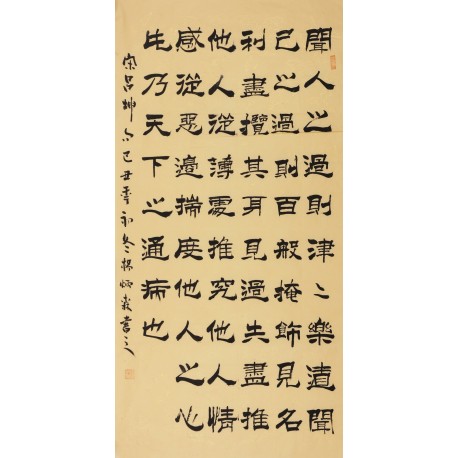 聞人之過則津〻樂道聞
己之過則百般掩飾見名
利盡攬其身見過失盡推
他人從薄處推究他人情
感從惡邊揣度他人之心
此乃天下之通病也
呂坤 己丑季初冬 炳 書之